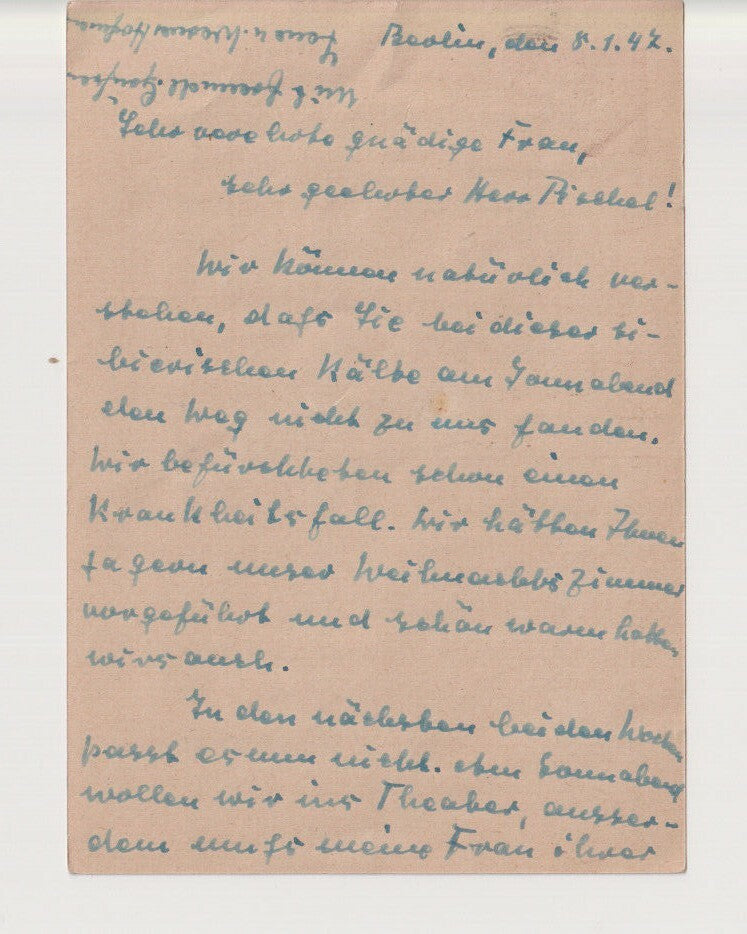 Berlin, den 8.1.47.
Sehr verehrte gnädige Frau,
sehr geehrter Herr Pischel!
Wir können natürlich ver-
stehen, dafs Sie bei dieser si-
birischen Kälte am Sonnabend
den Weg nicht zu uns fanden.
Wir befürchteten schon einen
Krankheitsfall. Wir hätten Ihnen
ja gern unser Weihnachtszimmer
vorgeführt und schön warm hatten
wirs auch.
In den nächsten beiden Wochen
passt es nun nicht. Am Sonnabend
wollen wir ins Theater, ausser-
dem mufs meine Frau ihrer
Mit
u. Werner